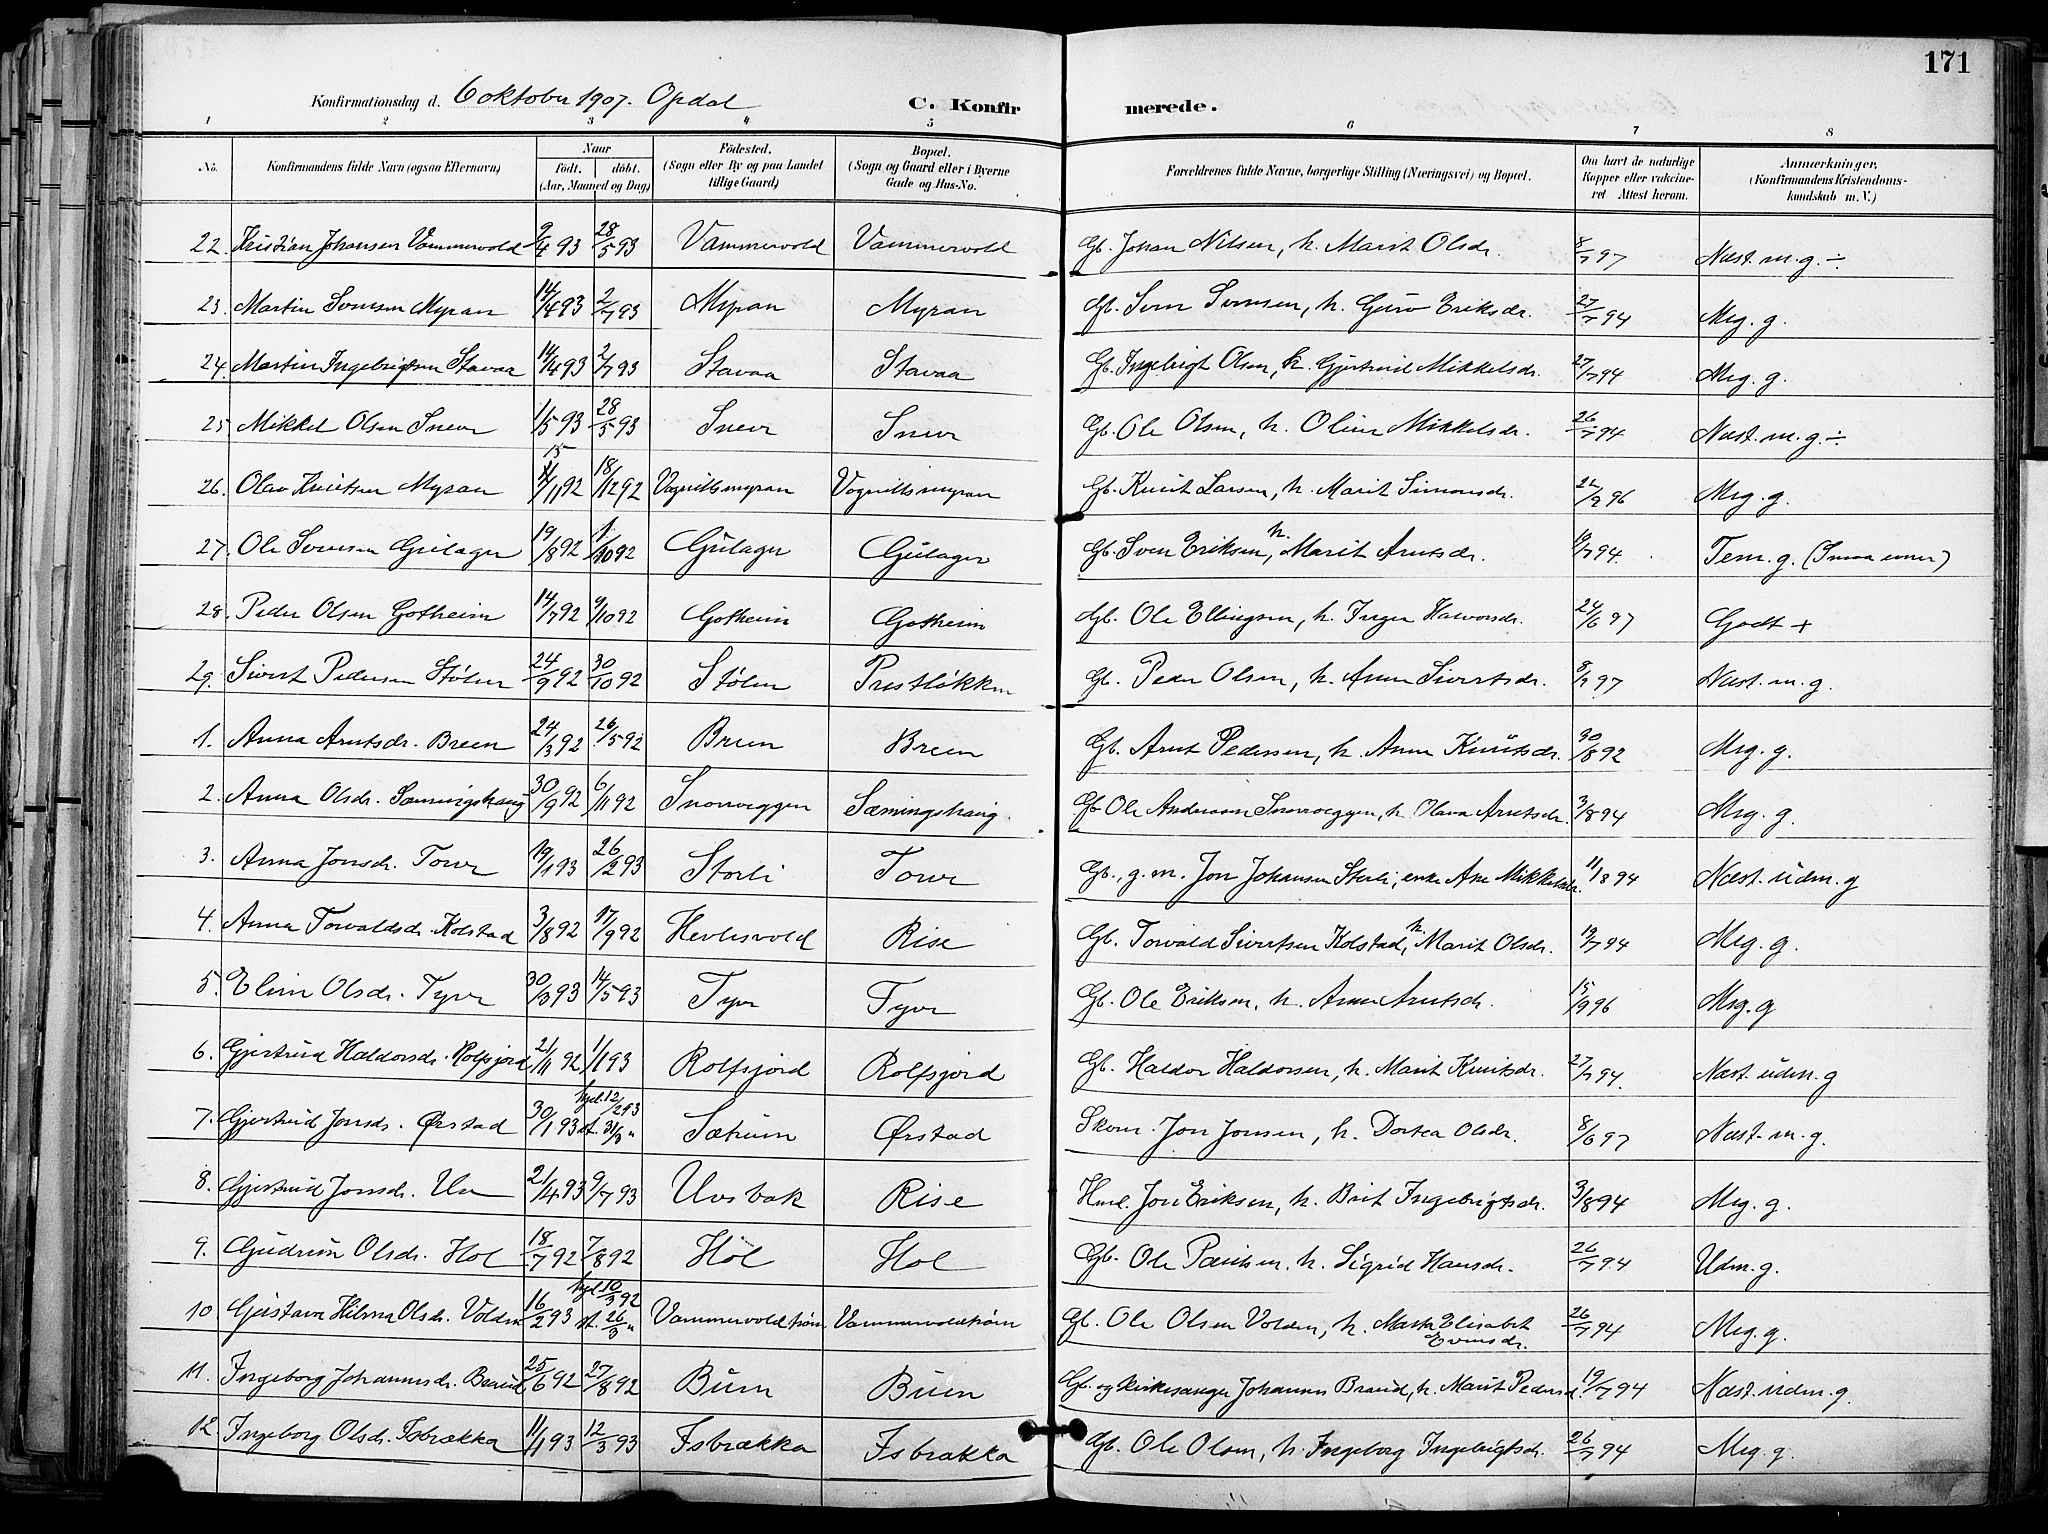 171
Konfirmationsdag d. 6 oktober 1907. Opdal C. Konfirmerede.
1 2 3 4 5 6 7 8
No. Konfirmandens fulde Navn (ogsaa Efternavn) Naar født. døbt. (Aar, Maaned og Dag) Fødested. (Sogn eller By og paa Landet tillige Gaard) Bopæl. (Sogn og Gaard eller i Byerne Gade og Hus-No. Forældrenes fulde Navne, borgerlige Stilling (Næringsvei) og Bopæl. Om havt de naturlige Kopper eller vakcineret Attest herom. Anmærkninger, (Konfirmandens Kristendomskundskab m. V.)
22. Kristian Johansen Vammervold 9/4 93 28/5 93 Vammervold Vammervold Gb. Johan Nilsen, h. Marit Olsdr. 8/7 97 Næst. m. g. ÷
23. Martin Svensen Myran 14/4 93 2/7 93 Myran Myran Gb. Sven Svensen, h. Guro Eriksdr. 27/7 94 Mg. g.
24. Martin Ingebrigtsen Stavaa 14/4 93 2/7 93 Stavaa Stavaa Gb. Ingebrigt Olsen, h. Gjertrud Mikkelsdr. 27/7 94 Mg. g.
25 Mikkel Olsen Sneve 1/5 93 28/5 93 Sneve Sneve Gb. Ole Olsen, h. Oline Mikkelsdr. 26/7 94 Næst. m. g. ÷
26. Olav Knutsen Myran 15/11 92 18/12 92 Vognillsmyran Vognillsmyran Gb. Knut Larsen, h. Marit Simonsdr. 22/9 96 Mg. g.
27. Ole Svensen Gulager 19/8 92 1/10 92 Gulager Gulager Gb. Sven Eriksen, h. Marit Arntsdr. 94. Tem. g. (Smaa evner)
28. Peder Olsen Gotheim 14/7 92 9/10 92 Gotheim Gotheim Gb. Ole Ellingsen, h. Inger Halvorsdr. 24/6 97 Godt +
29. Sivert Pedersen Stølen 24/9 92 30/10 92 Stølen Prestløkken Gb. Peder Olsen, h. Anne Sivertsdr. 8/7 97 Næst. m. g.
1. Anna Arntsdr. Breen 24/3 92 26/5 92 Breen Breen Gb. Arnt Pedersen, h. Anne Knutsdr. 30/8 92 Mg. g.
2. Anna Olsdr. Sæmingshaug 30/9 92 6/11 92 Snoveggen Sæmingshaug. Gb Ole Anderssen Snoveggen, h. Olava Arntsdr. 3/8 94 Mg. g.
3. Anna Jonsdr. Torve 19/1 93 26/2 93 Storli Torve Gb., g. m. Jon Johansen Storli, enke Ane Mikkelsdr. 11/8 94 Næst. udm. g
4. Anna Torvaldsdr. Kolstad 3/8 92 17/9 92 Hevlesvold Rise Gb. Torvald Sivertsen Kolstad, h. Marit Olsdr. 19/7 94 Mg. g.
5. Eline Olsdr. Tyve 30/3 93 14/5 93 Tyve Tyve Gb. Ole Eriksen, h. Anne Arntsdr. 15/9 96 Mg. g
6. Gjertrud Haldorsdr. Rolfsjord 21/11 92 1/1 93 Rolfsjord Rolfsjord Gb. Haldor Haldorsen, h. Marit Knutsdr. 27/7 94. Næst. udm. g
7. Gjertrud Jonsdr. Ørstad 30/1 93 hjd. 12/2 93 st. 31/3 " Sætrum Ørstad Skom. Jon Jonsen, h. Dortea Olsdr. 8/6 97 Næst. m. g.
8. Gjertrud Jonsdr. Uv 21/4 93 9/7 93 Uvsbak Rise Hml. Jon Eriksen, h. Brit Ingebrigtsdr. 3/8 94 Mg. g.
9. Gudrun Olsdr. Hol 18/7 92 7/8 92 Hol Hol Gb. Ole Paulsen, h. Sigrid Hansdr. 26/7 94 Udm. g.
10. Gustava Hilma Olsdr. Volden 16/2 93 hjd. 10/3 92 st. 26/3 " Vammervoldtrøen Vammervoldtrøen Gb. Ole Olsen Volden, h. Marta Elisabet Evensdr. 26/7 94 Mg. g.
11. Ingeborg Johannesdr. Braud 25/6 92 27/8 92 Buen Buen Gb. og kirkesanger Johannes Braud, h. Marit Pedersd. 19/7 94 Næst. udm. g.
12. Ingeborg Olsdr. Isbrækka 11/1 93 12/3 93 Isbrækka Isbrækka Gb. Ole Olsen, h. Ingeborg Ingebrigtsdr. 26/7 94 Mg. g.